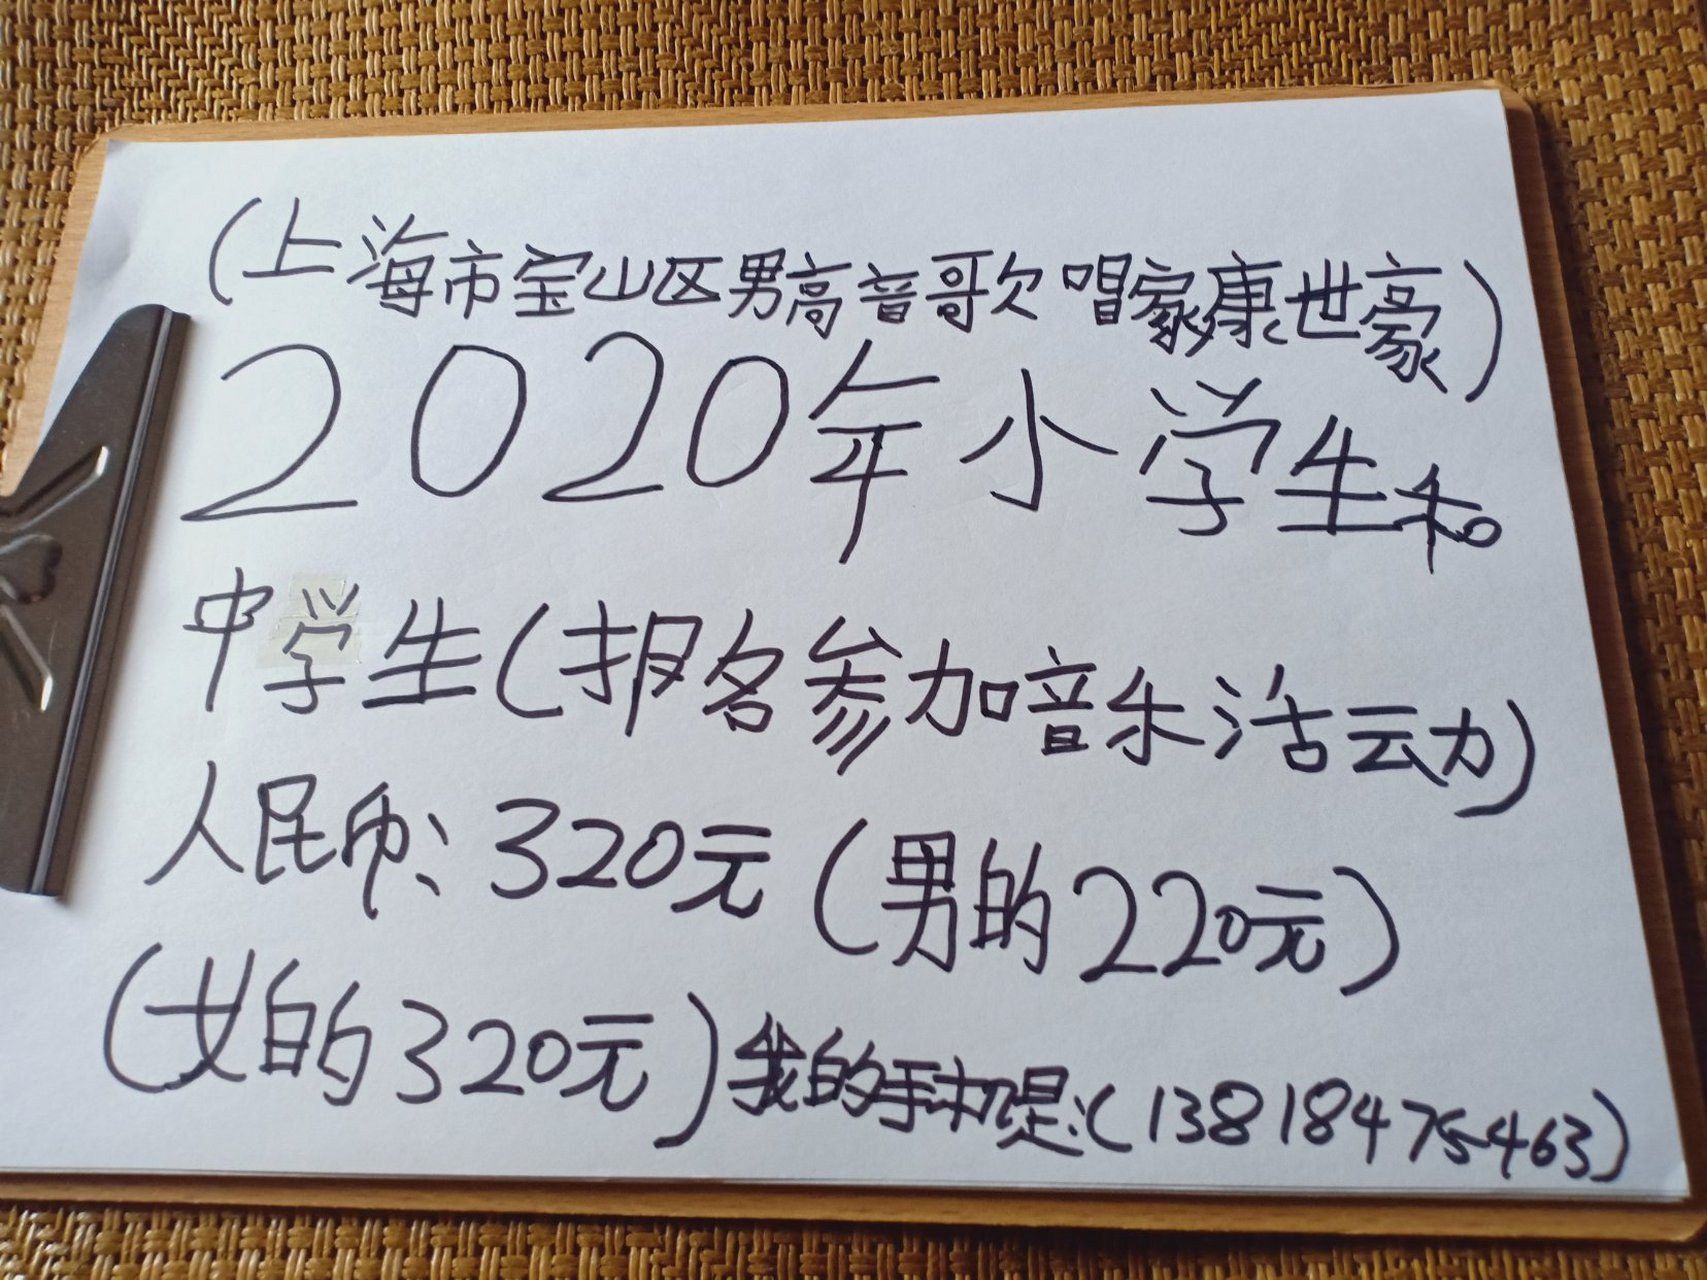 (上海市宝山区男高音歌唱家康世豪)
2020年小学生和
中学生(报名参加音乐活动)
人民币:320元(男的220元)
(女的320元)我的手机是:(13818475463)